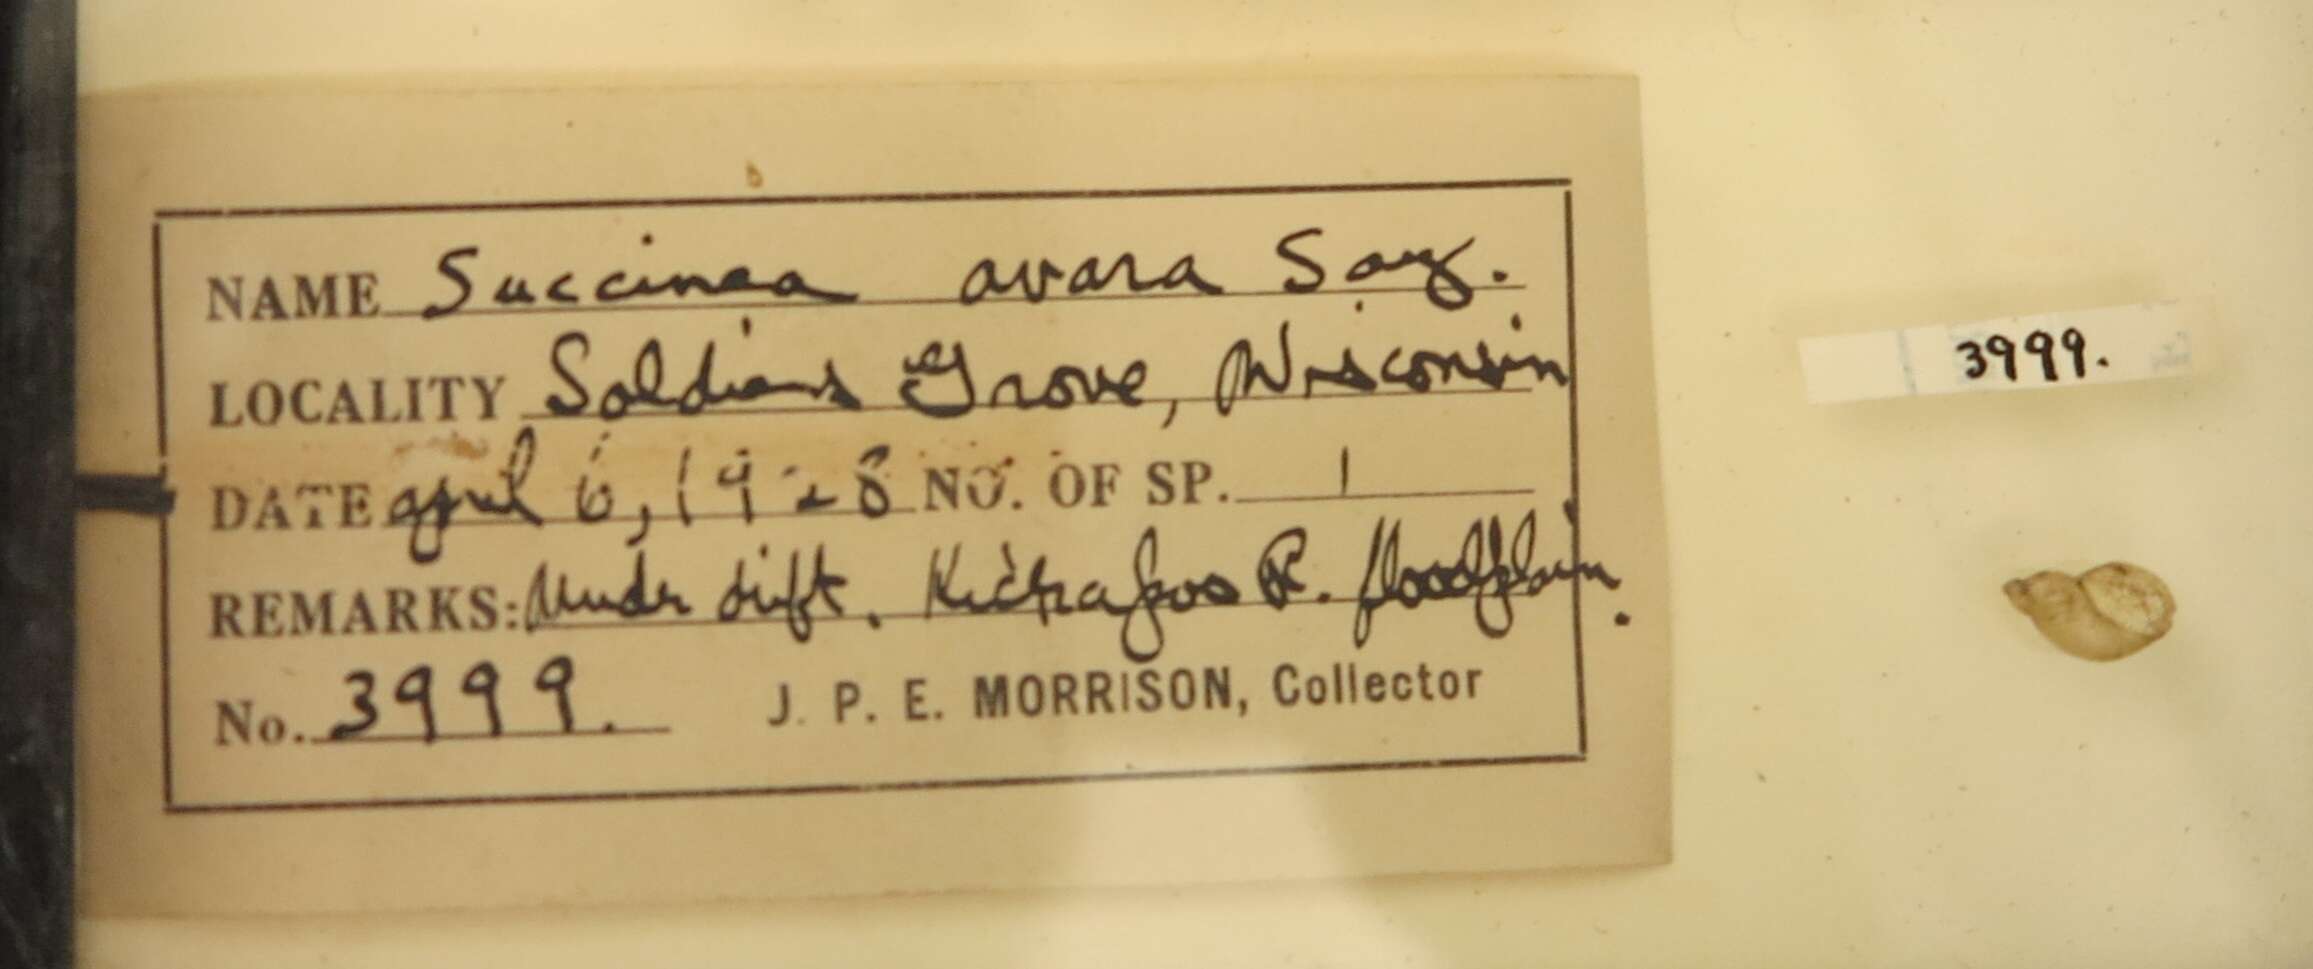 NAME Succinea avara Say.
LOCALITY Soldiers Grove, Wisconsin
DATE April 6, 1928 NO. OF SP. 1
REMARKS: Under drift. Kickapoo R. floodplain.
No. 3999. J. P. E. MORRISON, Collector
3999.